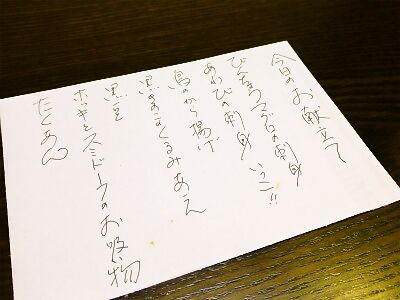 今日のお献立て
びんちょうマグロの刺身
あわびの刺身 いっこ!!
鳥のから揚げ
黒ごまくるみあえ
黒豆
ホッキとスミドーフのお吸い物
たくあん